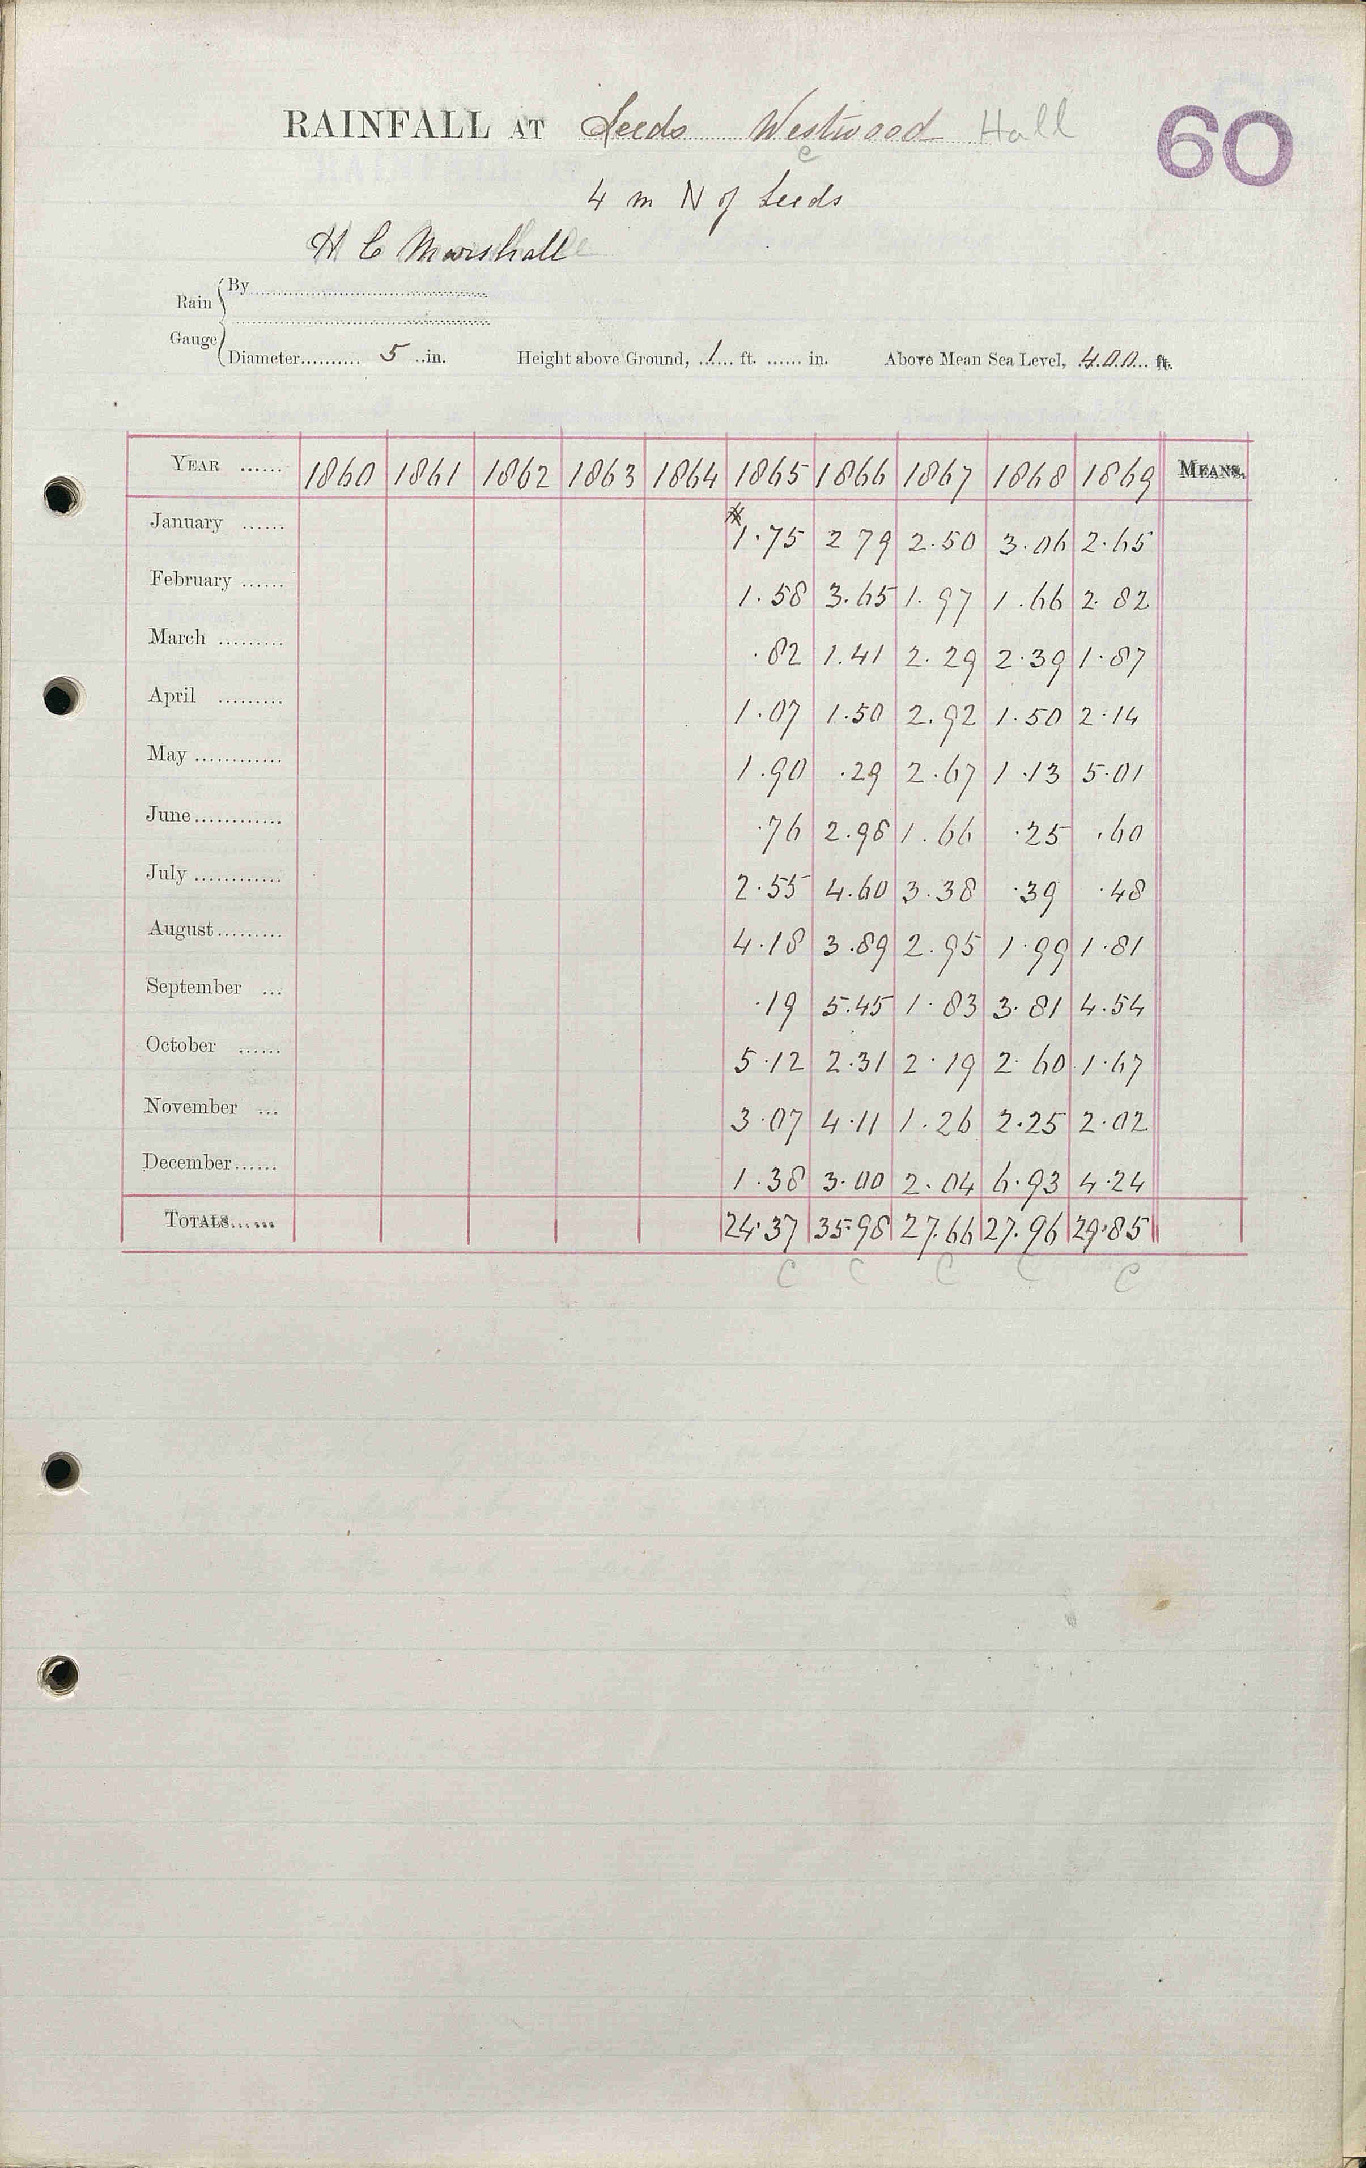 RAINFALL AT Leeds Westwood Hall 60
e
4 m N of Leeds
H C Marshall
Rain Gauge { By
Diameter.......... 5 ..in. Height above Ground, ..1.... ft. ...... in. Above Mean Sea Level, .400... ft.
YEAR ...... 1860 1861 1862 1863 1864 1865 1866 1867 1868 1869 MEANS.
January ...... *1.75 2 79 2.50 3.06 2.65
February ...... 1.58 3.65 1.97 1.66 2.82
March ......... .82 1.41 2.29 2.39 1.87
April ......... 1.07 1.50 2.92 1.50 2.14
May ............ 1.90 .29 2.67 1.13 5.01
June............ .76 2.98 1.66 .25 .60
July ............ 2.55 4.60 3.38 .39 .48
August......... 4.18 3.89 2.95 1.99 1.81
September ... .19 5.45 1.83 3.81 4.54
October ...... 5.12 2.31 2.19 2.60 1.67
November ... 3.07 4.11 1.26 2.25 2.02
December...... 1.38 3.00 2.04 6.93 4.24
TOTALS...... 24.37 35.98 27.66 27.96 29.85
C C C C C